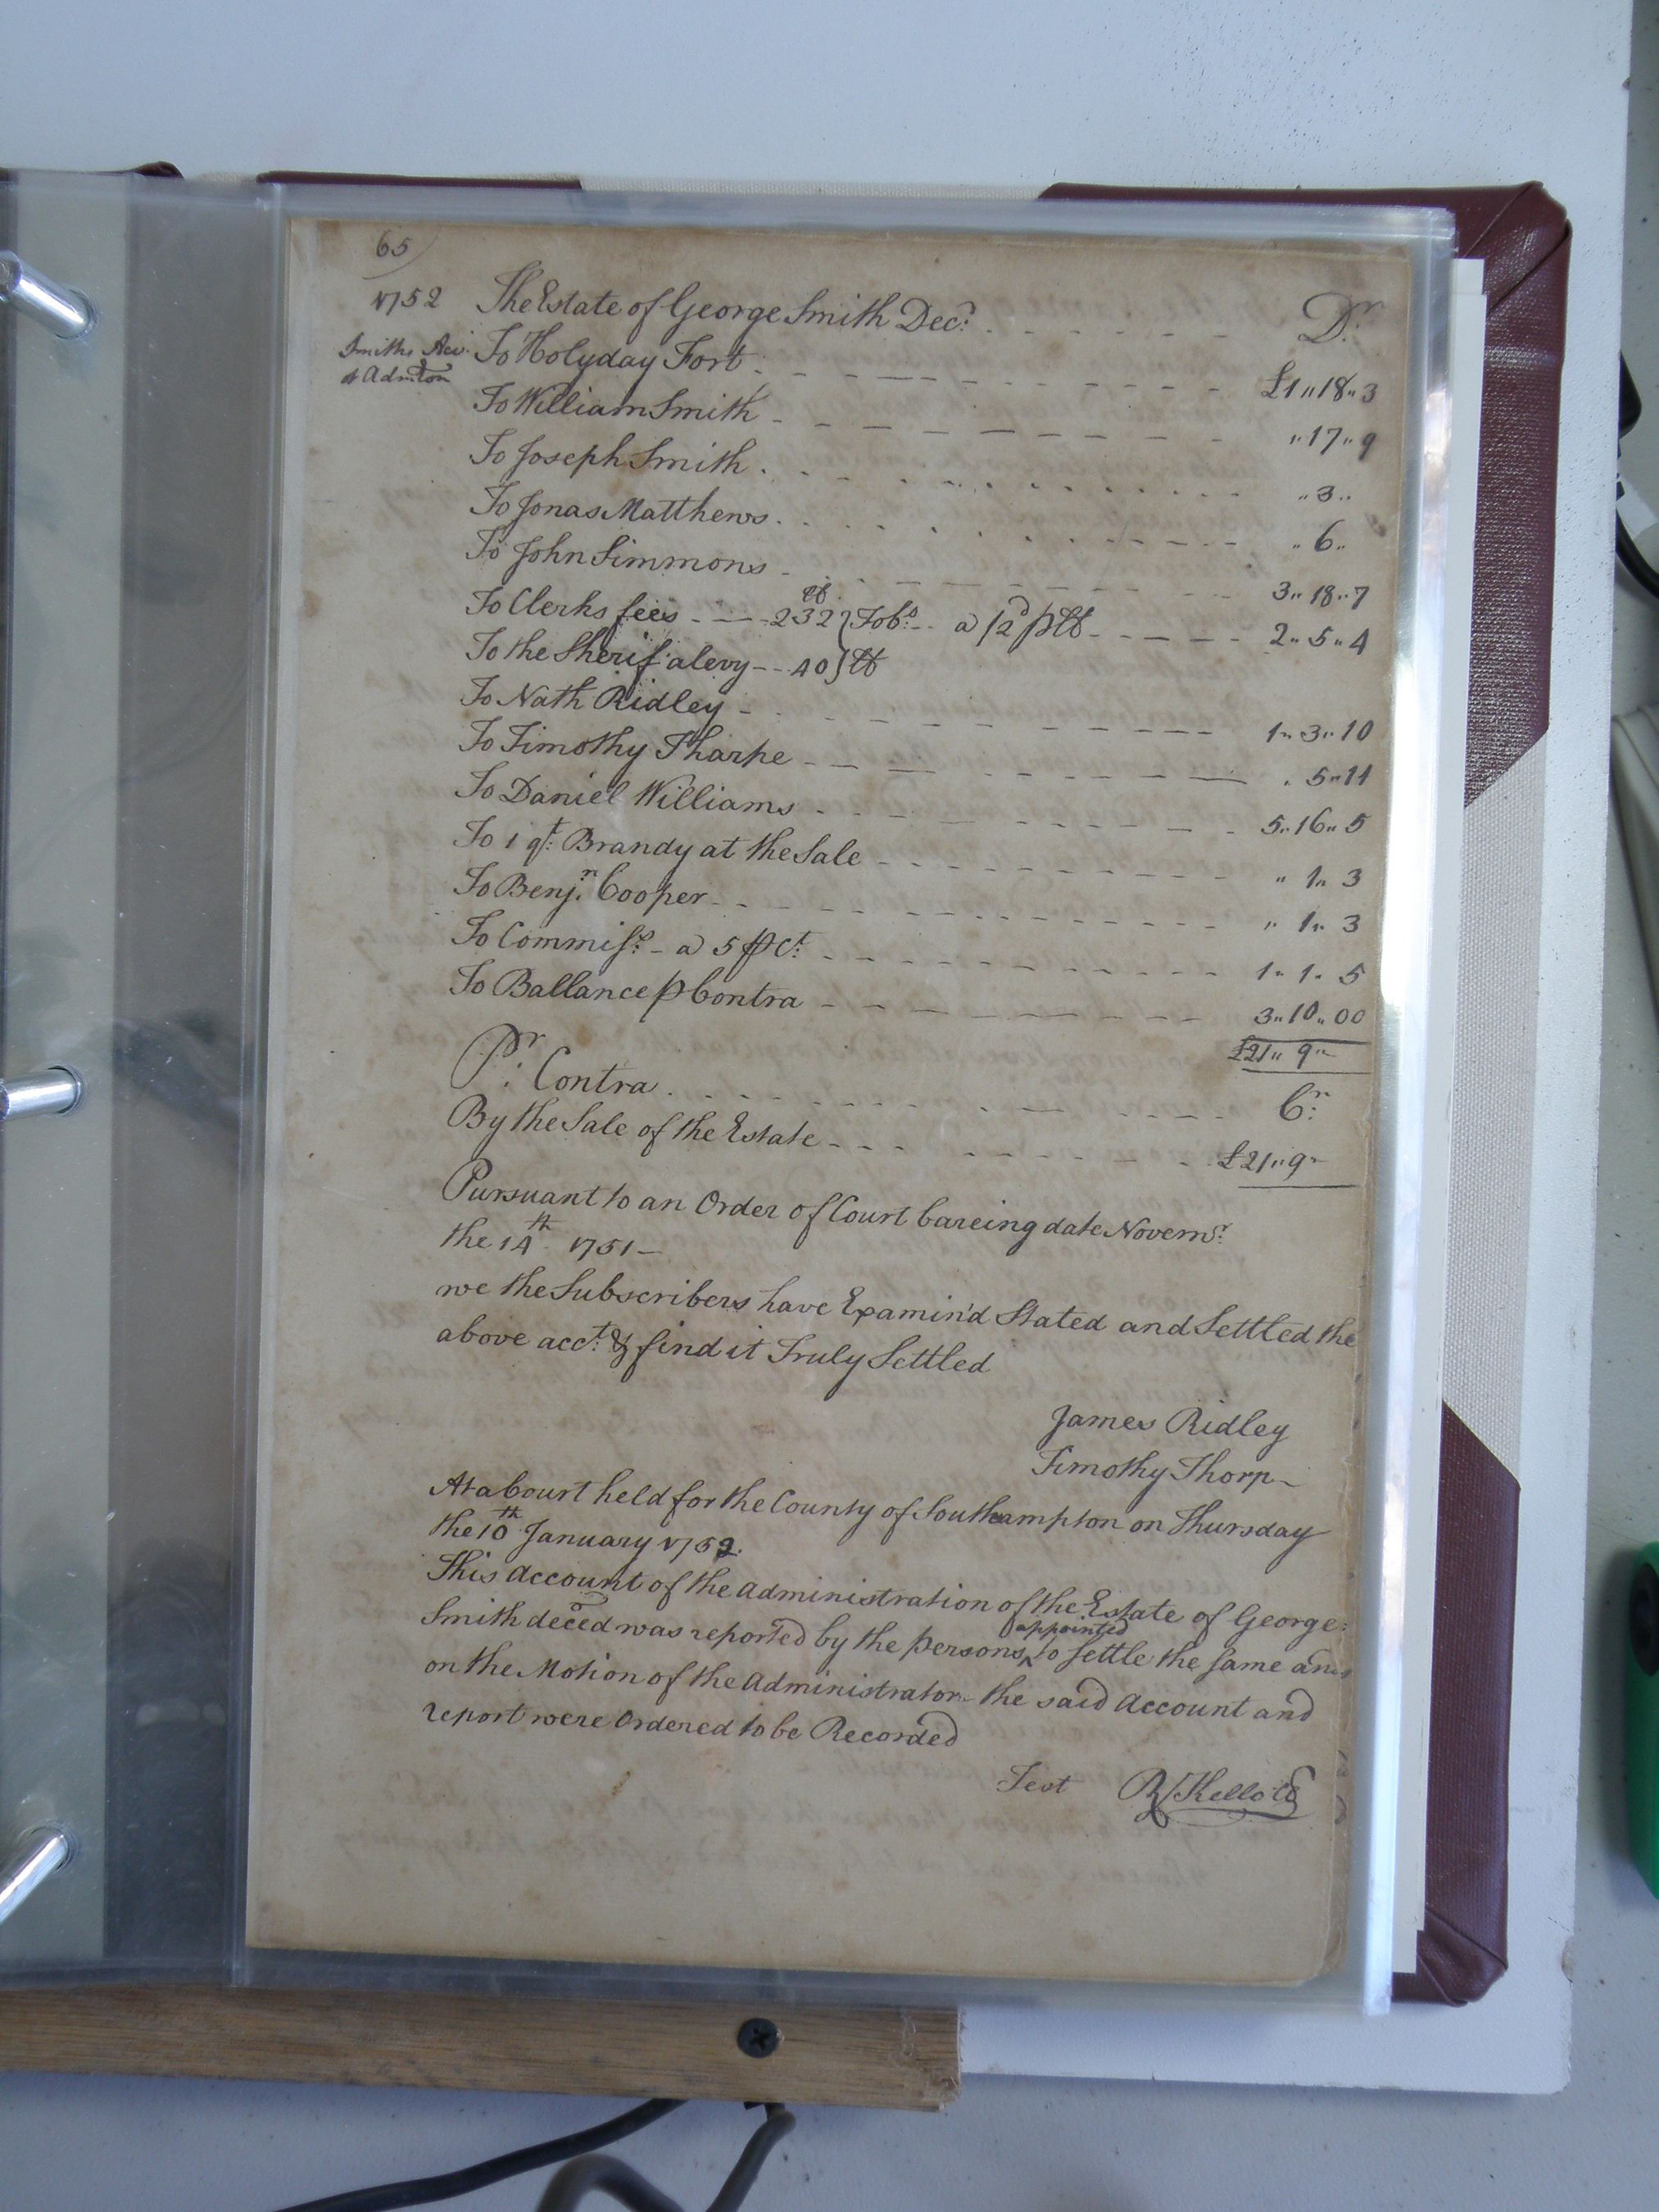 65
1752 The Estate of George Smith Decd. Dr.
Smiths Acct. of Admton
To Holyday Fort £1 " 18 " 3
To William Smith " 17 " 9
To Joseph Smith " 3 "
To Jonas Matthews " 6 "
To John Simmons 3 " 18 " 7
To Clerks fees 232 lb } Tobo. a 2d p lb 2 " 5 " 4
To the Sherif a levy 40 } lb
To Nath Ridley 1 " 3 " 10
To Timothy Tharpe " 5 " 11
To Daniel Williams 5 " 16 " 5
To 1 qt. Brandy at the Sale " 1 " 3
To Benjn. Cooper " 1 " 3
To Commiss. a 5 p Ct. 1 " 1 " 5
To Ballance p Contra 3 " 10 " 00
£21 " 9 "
Pr. Contra Cr.
By the Sale of the Estate £21 " 9 "
Pursuant to an Order of Court bareing date Novemr.
the 14th 1751
we the Subscribers have Examin'd Stated and Settled the
above acct. & find it Truly Settled
James Ridley
Timothy Thorp
At a Court held for the County of Southampton on Thursday
the 10th January 1752
This Account of the Administration of the Estate of George
Smith deced was reported by the persons appointed to settle the same and
on the Motion of the Administrator the said Account and
report were Ordered to be Recorded
Test R Kello Cl